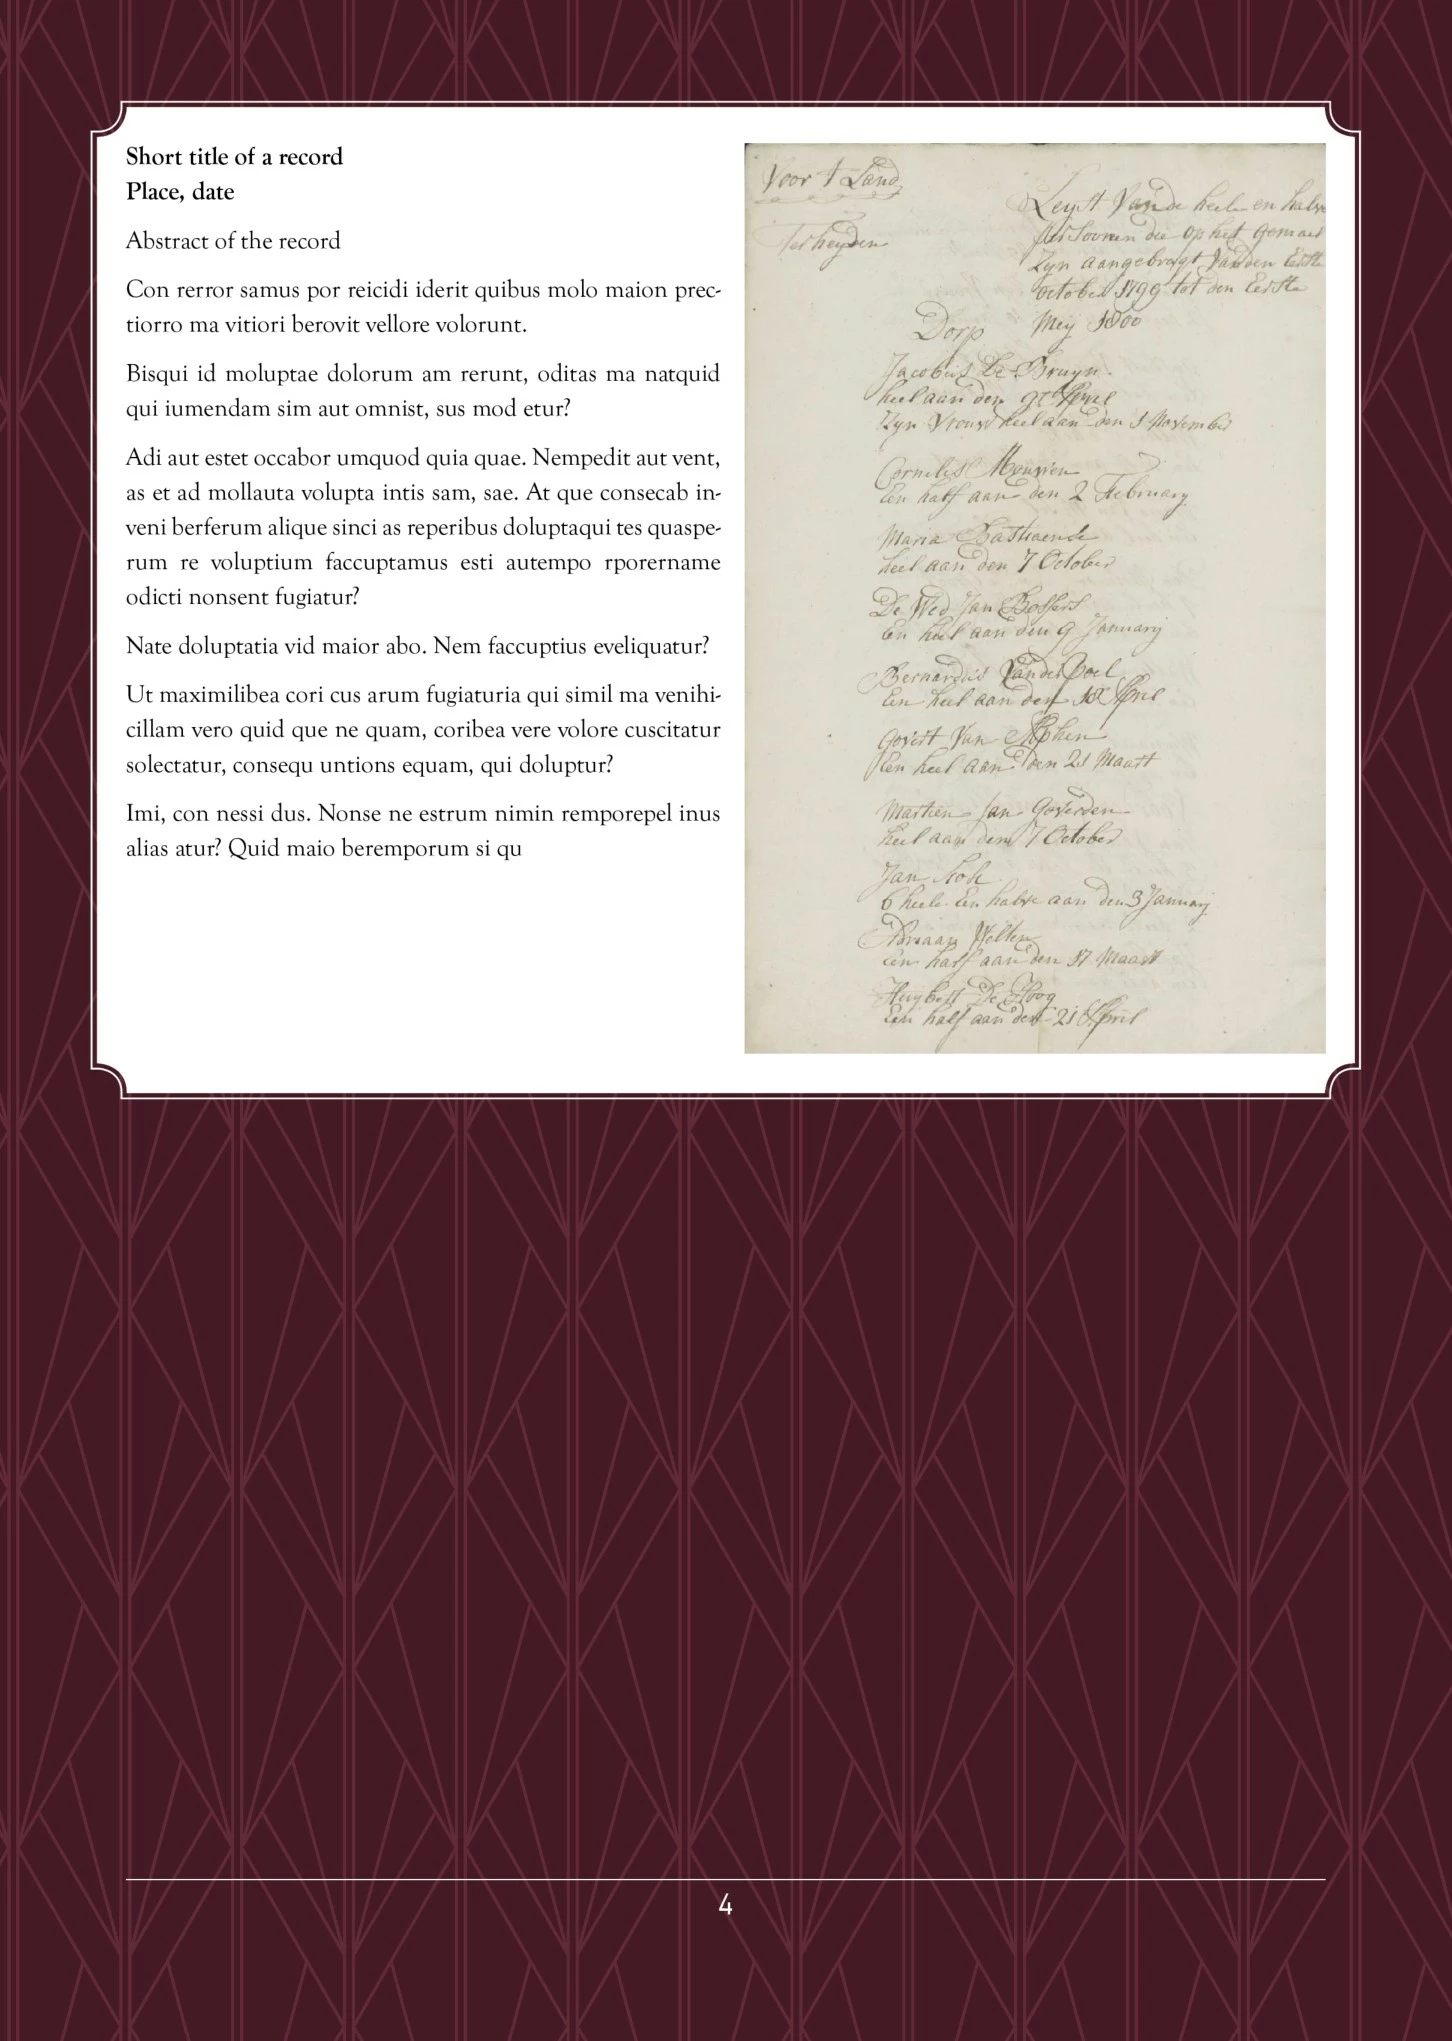 Short title of a record
Place, date
Abstract of the record
Con rerror samus por reicidi iderit quibus molo maion prec-
tiorro ma vitiori berovit vellore volorunt.
Bisqui id moluptae dolorum am rerunt, oditas ma natquid
qui iumendam sim aut omnist, sus mod etur?
Adi aut estet occabor umquod quia quae. Nempedit aut vent,
as et ad mollauta volupta intis sam, sae. At que consecab in-
veni berferum alique sinci as reperibus doluptaqui tes quaspe-
rum re voluptium faccuptamus esti autempo rporername
odicti nonsent fugiatur?
Nate doluptatia vid maior abo. Nem faccuptius eveliquatur?
Ut maximilibea cori cus arum fugiaturia qui simil ma venihi-
cillam vero quid que ne quam, coribea vere volore cuscitatur
solectatur, consequ untions equam, qui doluptur?
Imi, con nessi dus. Nonse ne estrum nimin remporepel inus
alias atur? Quid maio beremporum si qu
Voor t Land
Terheyden
Leyst Vande heele en halve
persoonen die op het gemael
Zyn aangebragt Van den Eerste
october 1799 tot den Eerste
Dorp Meij 1800
Jacobus De Bruyn.
heel aan den April
Zyn Vrouw heel aan den 1 November
Cornelis
Een half aan den 2 February
Maria
heel aan den 7 October
De Wed Jan
Een heel aan den 9 January
Bernardus Van der Poel
Een heel aan den 18 April
Govert Van Alphen
Een heel aan den 21 Maart
Jan Goverden
heel aan den 7 October
Jan
6 heele Een halve aan den 3 January
Adriaan Welten
Een half aan den 17 Maart
Huybert De Hoog
Een half aan den 21 April
4